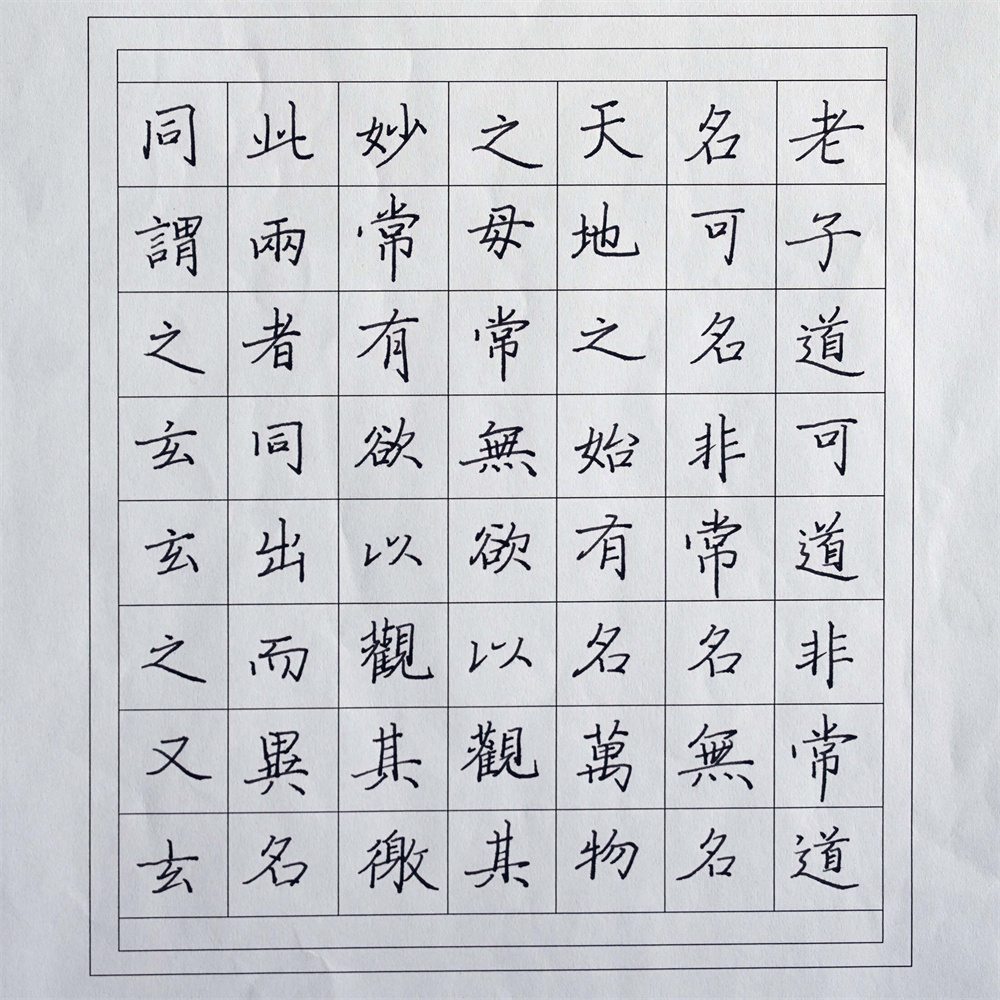 老子道可道非常道
名可名非常名無名
天地之始有名萬物
之母常無欲以觀其
妙常有欲以觀其徼
此兩者同出而異名
同謂之玄玄之又玄